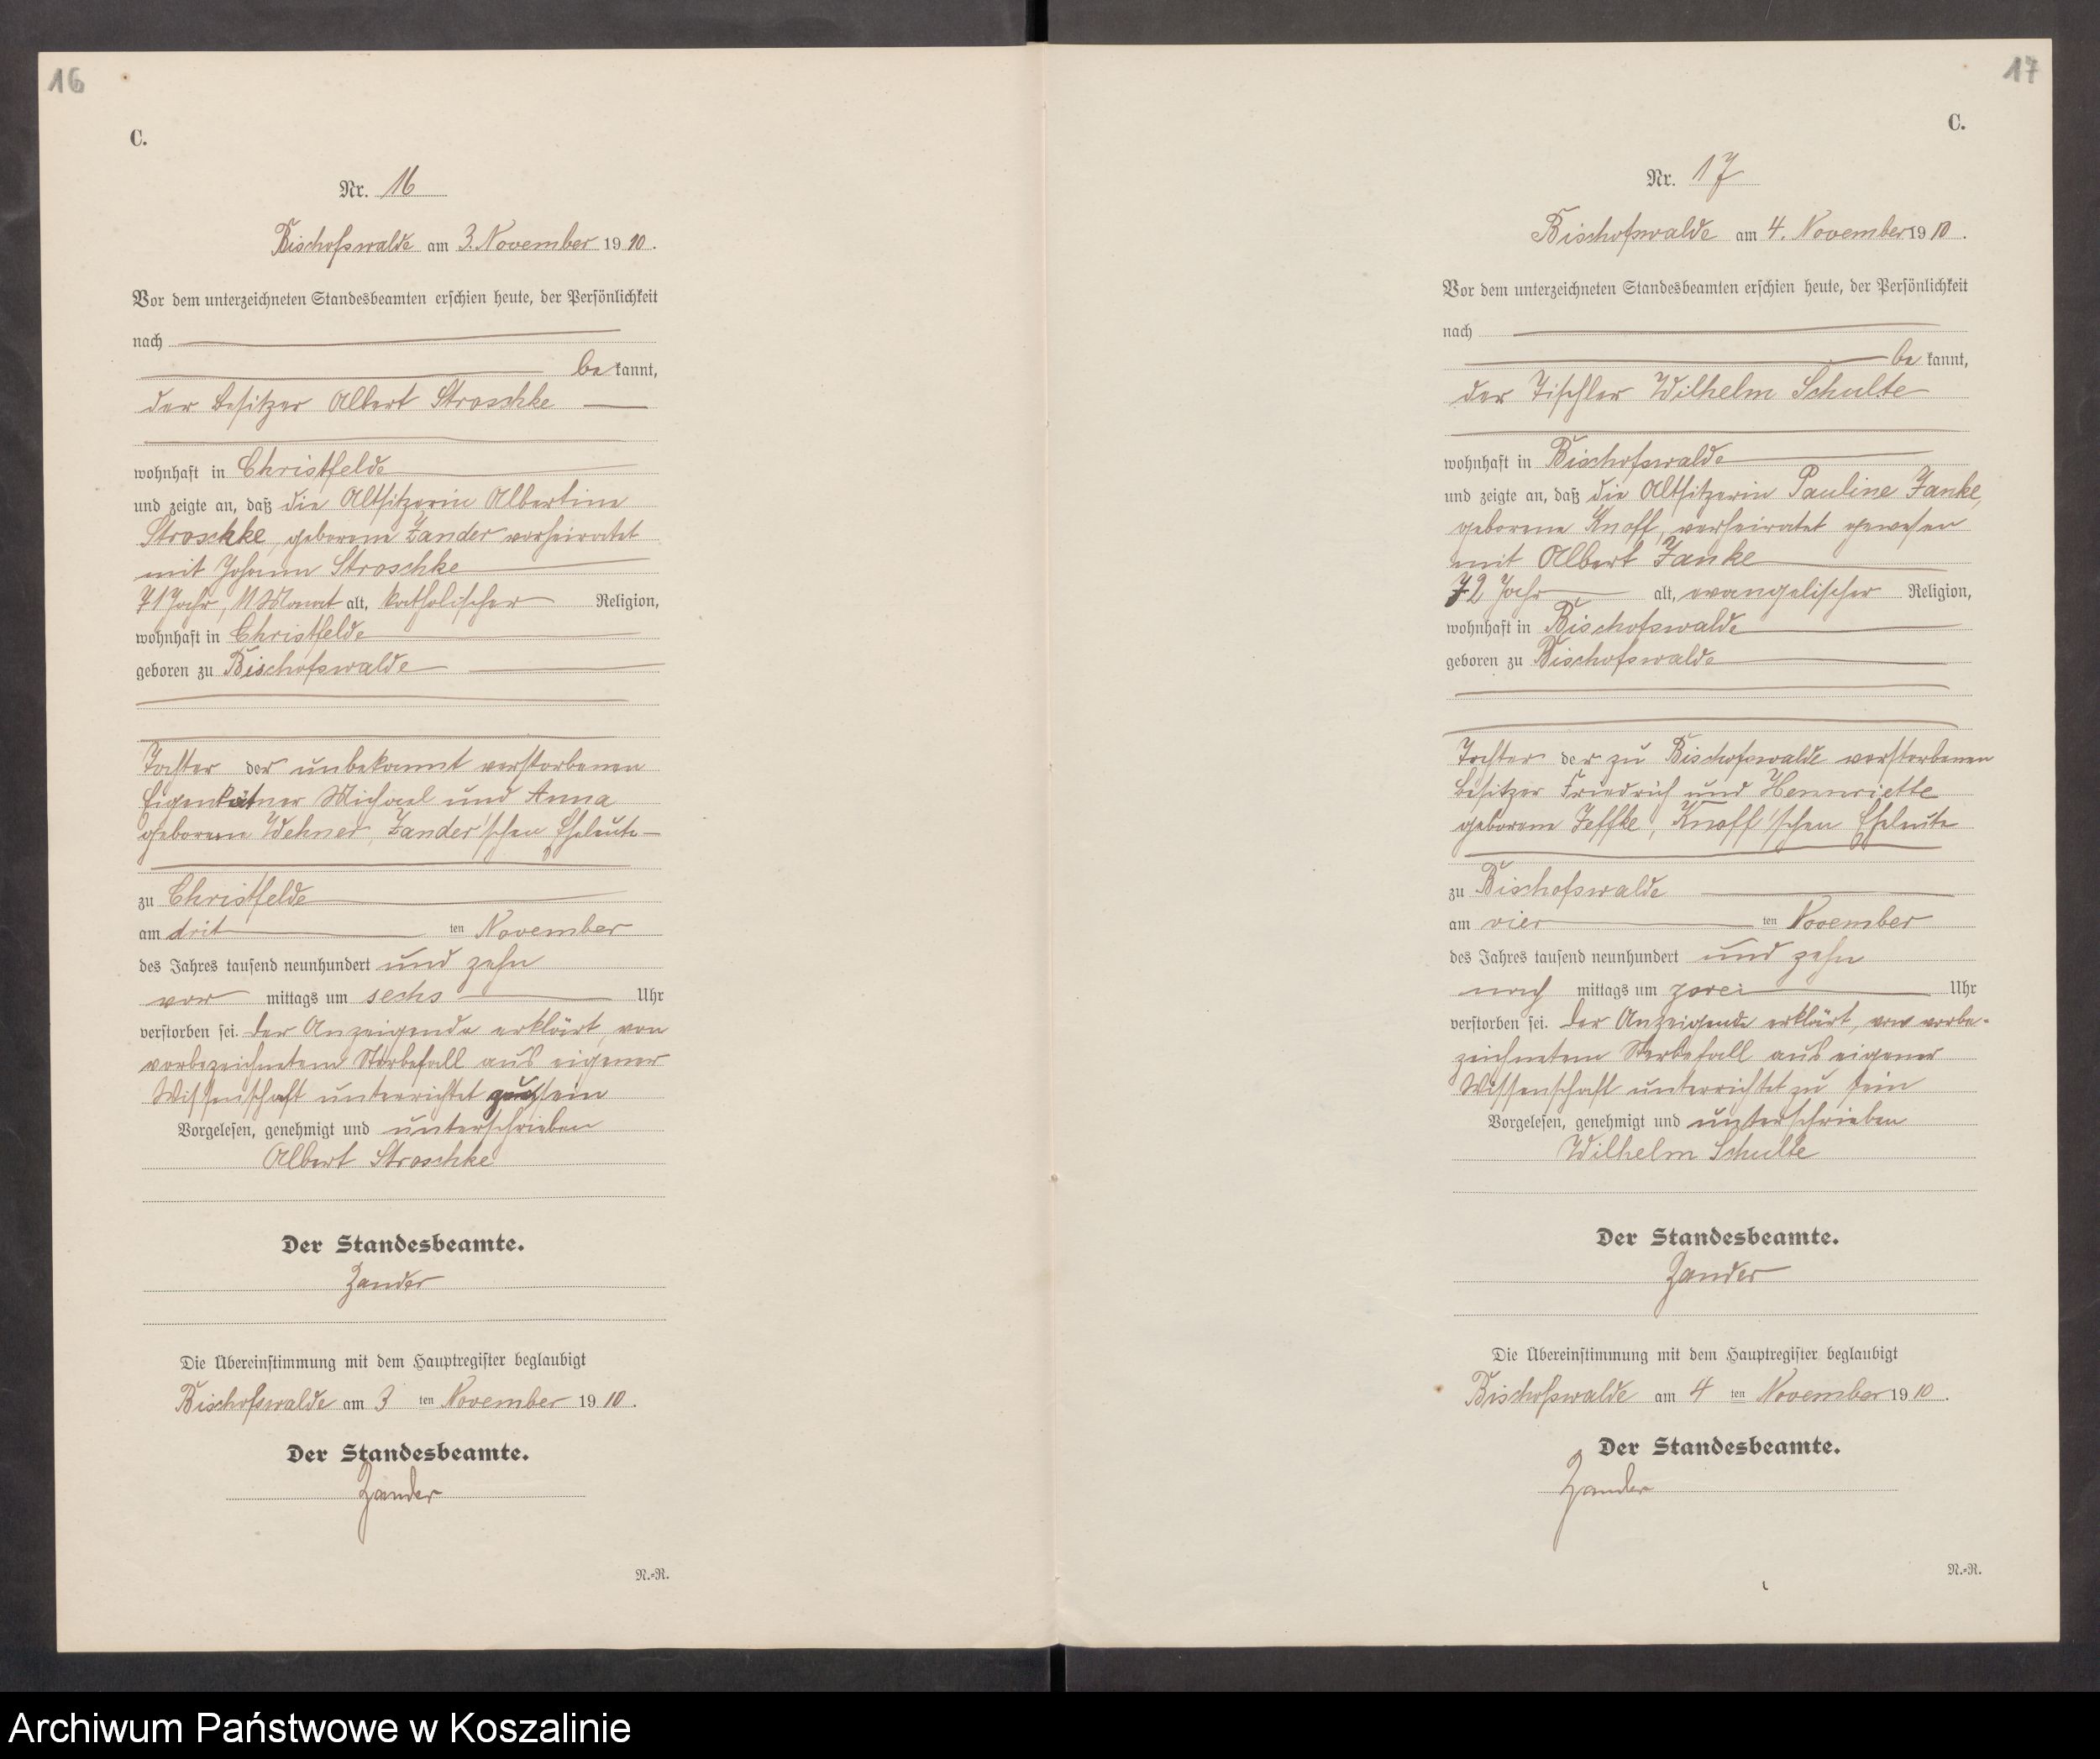 16
C.
Nr. 16
Bischofswalde am 3. November 1910.
Vor dem unterzeichneten Standesbeamten erschien heute, der Persönlichkeit
nach
bekannt,
der Besitzer Albert Stroschke
wohnhaft in Christfelde
und zeigte an, daß die Altsitzerin Albertine
Stroschke, geborene Zander verheiratet
mit Johann Stroschke
71 Jahr, 11 Monat alt, katholischer Religion,
wohnhaft in Christfelde
geboren zu Bischofswalde
Tochter der unbekannt verstorbenen
Eigenkätner Michael und Anna
geborenen Wehner, Zander'schen Eheleute
zu Christfelde
am drit ten November
des Jahres tausend neunhundert und zehn
vor mittags um sechs Uhr
verstorben sei. Der Anzeigende erklärt, von
vorbezeichnetem Sterbefall aus eigener
Wissenschaft unterrichtet zu sein
Vorgelesen, genehmigt und unterschrieben
Albert Stroschke
Der Standesbeamte.
Zander
Die Übereinstimmung mit dem Hauptregister beglaubigt
Bischofswalde am 3 ten November 1910.
Der Standesbeamte.
Zander
N.=R.
17
C.
Nr. 17
Bischofswalde am 4. November 1910.
Vor dem unterzeichneten Standesbeamten erschien heute, der Persönlichkeit
nach
bekannt,
der Tischler Wilhelm Schulte
wohnhaft in Bischofswalde
und zeigte an, daß die Altsitzerin Pauline Janke,
geborene Knoff, verheiratet gewesen
mit Albert Janke
72 Jahr alt, evangelischer Religion,
wohnhaft in Bischofswalde
geboren zu Bischofswalde
Tochter der zu Bischofswalde verstorbenen
Besitzer Friedrich und Hennriette
geborene Jeffke, Knoff'schen Eheleute
zu Bischofswalde
am vier ten November
des Jahres tausend neunhundert und zehn
nach mittags um zwei Uhr
verstorben sei. Der Anzeigende erklärt, von vorbe-
zeichnetem Sterbefall aus eigener
Wissenschaft unterrichtet zu sein
Vorgelesen, genehmigt und unterschrieben
Wilhelm Schulte
Der Standesbeamte.
Zander
Die Übereinstimmung mit dem Hauptregister beglaubigt
Bischofswalde am 4 ten November 1910.
Der Standesbeamte.
Zander
N.=R.
Archiwum Państwowe w Koszalinie